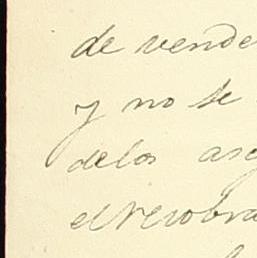 de vende
y no se
delos ase
el recobra